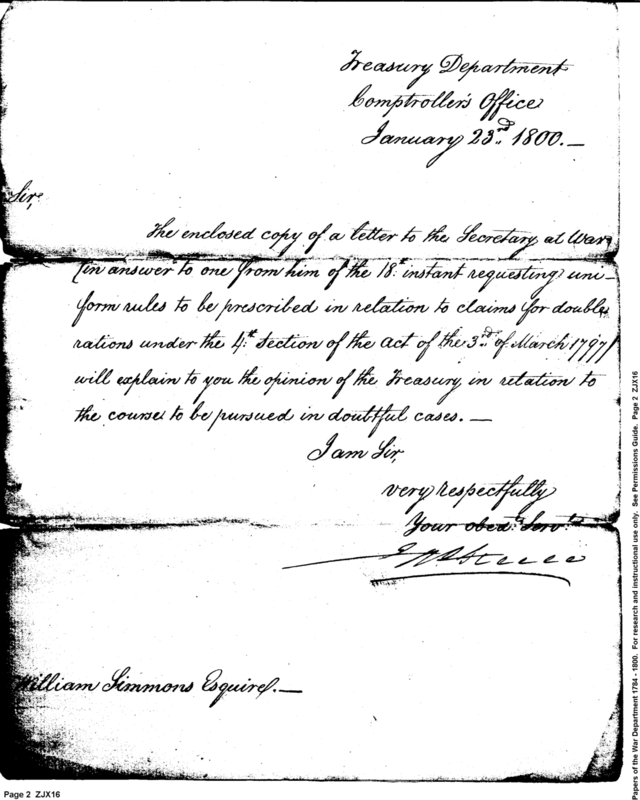 Treasury Department
Comptroller's Office
January 23.nd 1800.—
Sir,
The enclosed copy of a letter to the Secretary at War
(in answer to one from him of the 18.th instant requesting uni-
form rules to be prescribed in relation to claims for double
rations under the 4.th Section of the Act of the 3.rd of March 1797)
will explain to you the opinion of the Treasury in relation to
the course to be pursued in doubtful cases.—
I am Sir,
very respectfully
Your obed.t Serv.t
William Simmons Esquire.—
Page 2 ZJX16
Papers of the War Department 1784 - 1800. For research and instructional use only. See Permissions Guide. Page 2 ZJX16